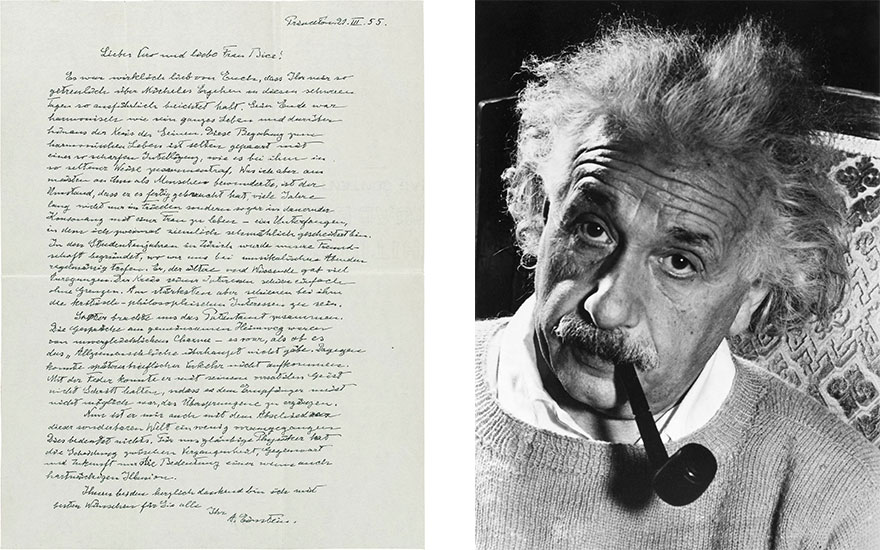 Princeton 21. III. 55.
Lieber Vero und liebe Frau Bice!
Es war wirklich lieb von Euch, dass Ihr mir so
getreulich über Micheles Ergehen in diesen schweren
Tagen so ausführlich berichtet habt. Sein Ende war
harmonisch wie sein ganzes Leben und darüber
hinaus der Kreis der Seinen. Diese Begabung zum
harmonischen Leben ist selten gepaart mit
einer so scharfen Intelligenz, wie es bei ihm in
so seltener Weise zusammentraf. Was ich aber am
meisten an ihm als Menschen bewunderte, ist der
Umstand, dass er es fertig gebracht hat, viele Jahre
lang nicht nur im Frieden sondern sogar in dauernder
Konsonanz mit einer Frau zu leben – ein Unterfangen,
in dem ich zweimal ziemlich schmählich gescheitert bin.
In den Studentenjahren in Zürich wurde unsere Freund-
schaft begründet, wo wir uns bei musikalischen Abenden
regelmässig trafen. Er, der Ältere und Wissende gab viel
Anregungen. Der Kreis seiner Interessen schien einfach
ohne Grenzen. Am stärksten aber schienen bei ihm
die kritisch-philosophischen Interessen zu sein.
Später brachte uns das Patentamt zusammen.
Die Gespräche am gemeinsamen Heimweg waren
von unvergleichlichem Charme – es war, als ob es
das „Allzumenschliche" überhaupt nicht gäbe. Dagegen
konnte später brieflicher Verkehr nicht aufkommen.
Mit der Feder konnte er mit seinem Geist
nicht Schritt halten, sodass es dem Empfänger meist
nicht möglich war, das Übersprungene zu ergänzen.
Nun ist er mir auch mit dem Abschied von
dieser sonderbaren Welt ein wenig vorausgegangen.
Dies bedeutet nichts. Für uns gläubige Physiker hat
die Scheidung zwischen Vergangenheit, Gegenwart
und Zukunft nur die Bedeutung einer wenn auch
hartnäckigen Illusion.
Ihnen beiden herzlich dankend bin ich mit
besten Wünschen für Sie alle
Ihr
A. Einstein.